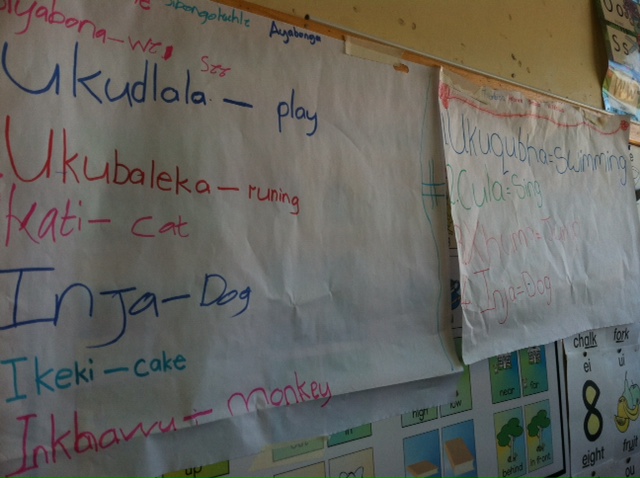 Sibongokuhle
Ayabonga
Siyabona - we
See
Ukudlala - play
Ukubaleka - runing
Kati - cat
Inja - Dog
Ikeki - cake
Inkbawu - monkey
Ukuqubha = Swimming
Cula = Sing
Inja = Dog
chalk
fork
ei
ui
8
eight
fruit
ou
near
far
high
low
up
in
behind
in front
Ss